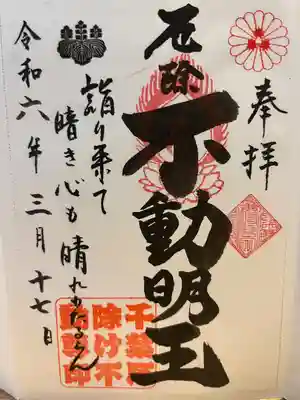 奉拝
厄除
不動明王
詣り来て
暗き心も晴れわたるらん
令和六年三月十七日
千葉厄
除け不
動尊印